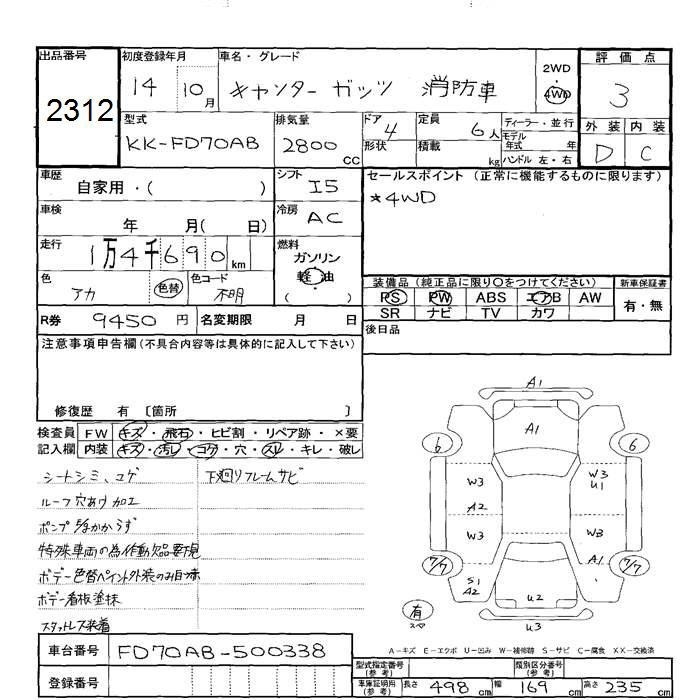 出品番号 初度登録年月 車名・グレード 2WD 評価点
2312 14 10月 キャンター ガッツ 消防車 4WD 3
型式 排気量 ドア 定員 ディーラー・並行 外装 内装
KK-FD70AB 2800 CC 4 6人 モデル年式 年 D C
形状 積載 kg ハンドル 左・右
車歴 シフト セールスポイント (正常に機能するものに限ります)
自家用・( ) I5 *4WD
車検 冷房
年 月( 日) AC
走行 燃料
1万4千690km ガソリン
色 色替 色コード 軽油
アカ 不明 ( )
装備品 (純正品に限り○をつけてください) 新車保証書
PS PW ABS エアB AW 有・無
SR ナビ TV カワ
R券 9450円 名変期限 月 日 後日品
注意事項申告欄(不具合内容等は具体的に記入して下さい)
修復歴 有 [箇所 ]
検査員 FW キズ・飛石・ヒビ割・リペア跡・×要
記入欄 内装 キズ・汚レ・コゲ・穴・スレ・キレ・破レ
シートシミ、コゲ 下廻りフレームサビ
ルーフ穴あけ加工
ポンプ
特殊車両の為作動欠品要下見
ボデー色替ペイント外装のみ
ボデー看板塗抹
スタットレス装着
A1
A1
6 6
W3 W3
U1
A2
W3 W3
A1
7/7 7/7
S1
A2
U2
有
スペア
U3
A-キズ E-エクボ U-凹み W-補修跡 S-サビ C-腐食 XX-交換済
車台番号 FD70AB-500338
登録番号
型式指定番号(参考) 類別区分番号(参考)
車庫証明用(参考) 長さ 498cm 幅 169cm 高さ 235cm